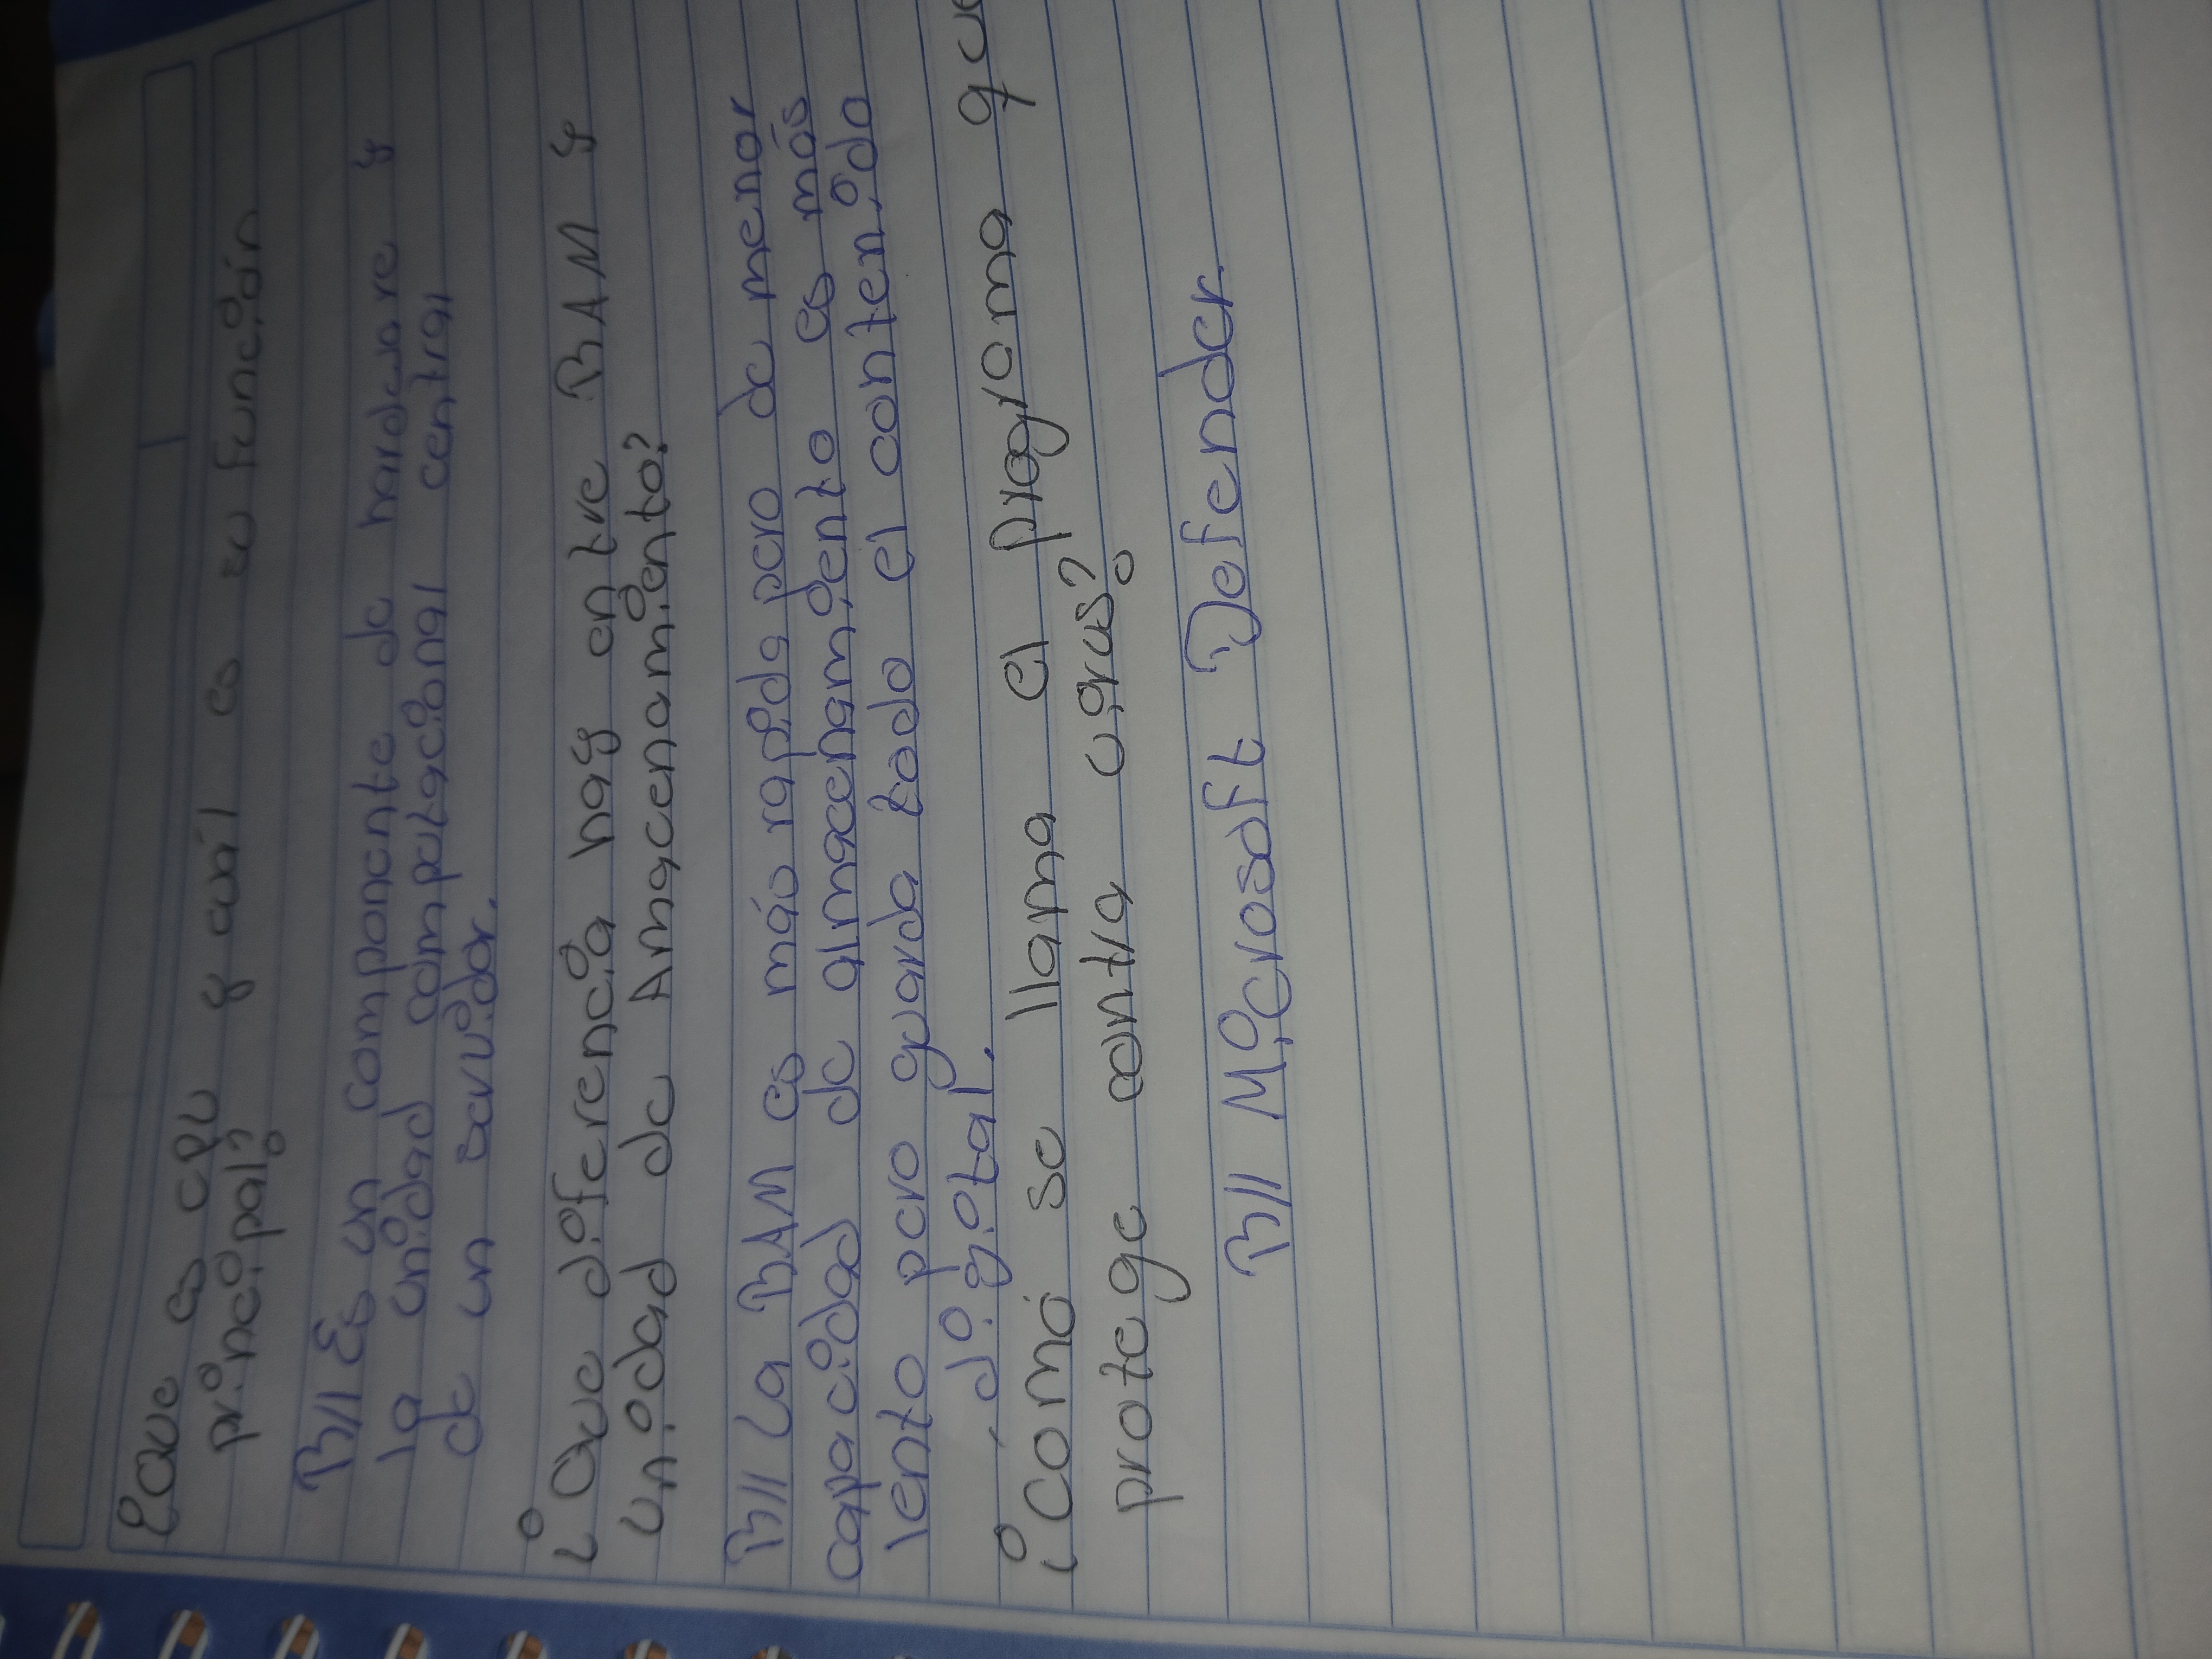 ¿Que es CPU y cuál es su función
principal?
R// Es un componente de hardware y
la unidad computacional central
de un servidor.
¿Que diferencia hay entre RAM y
Unidad de Amacenamiento?
R// La RAM es más rapida pero de menor
capacidad de almacenamiento es más
lento pero guarda todo el contenido
digital.
¿Comó se llama el programa que
protege contra virus?
R// Microsoft Defender.